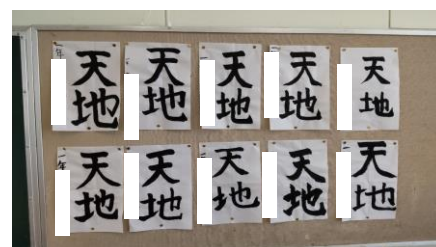 天地
天地
天地
天地
天地
天地
天地
天地
天地
天地